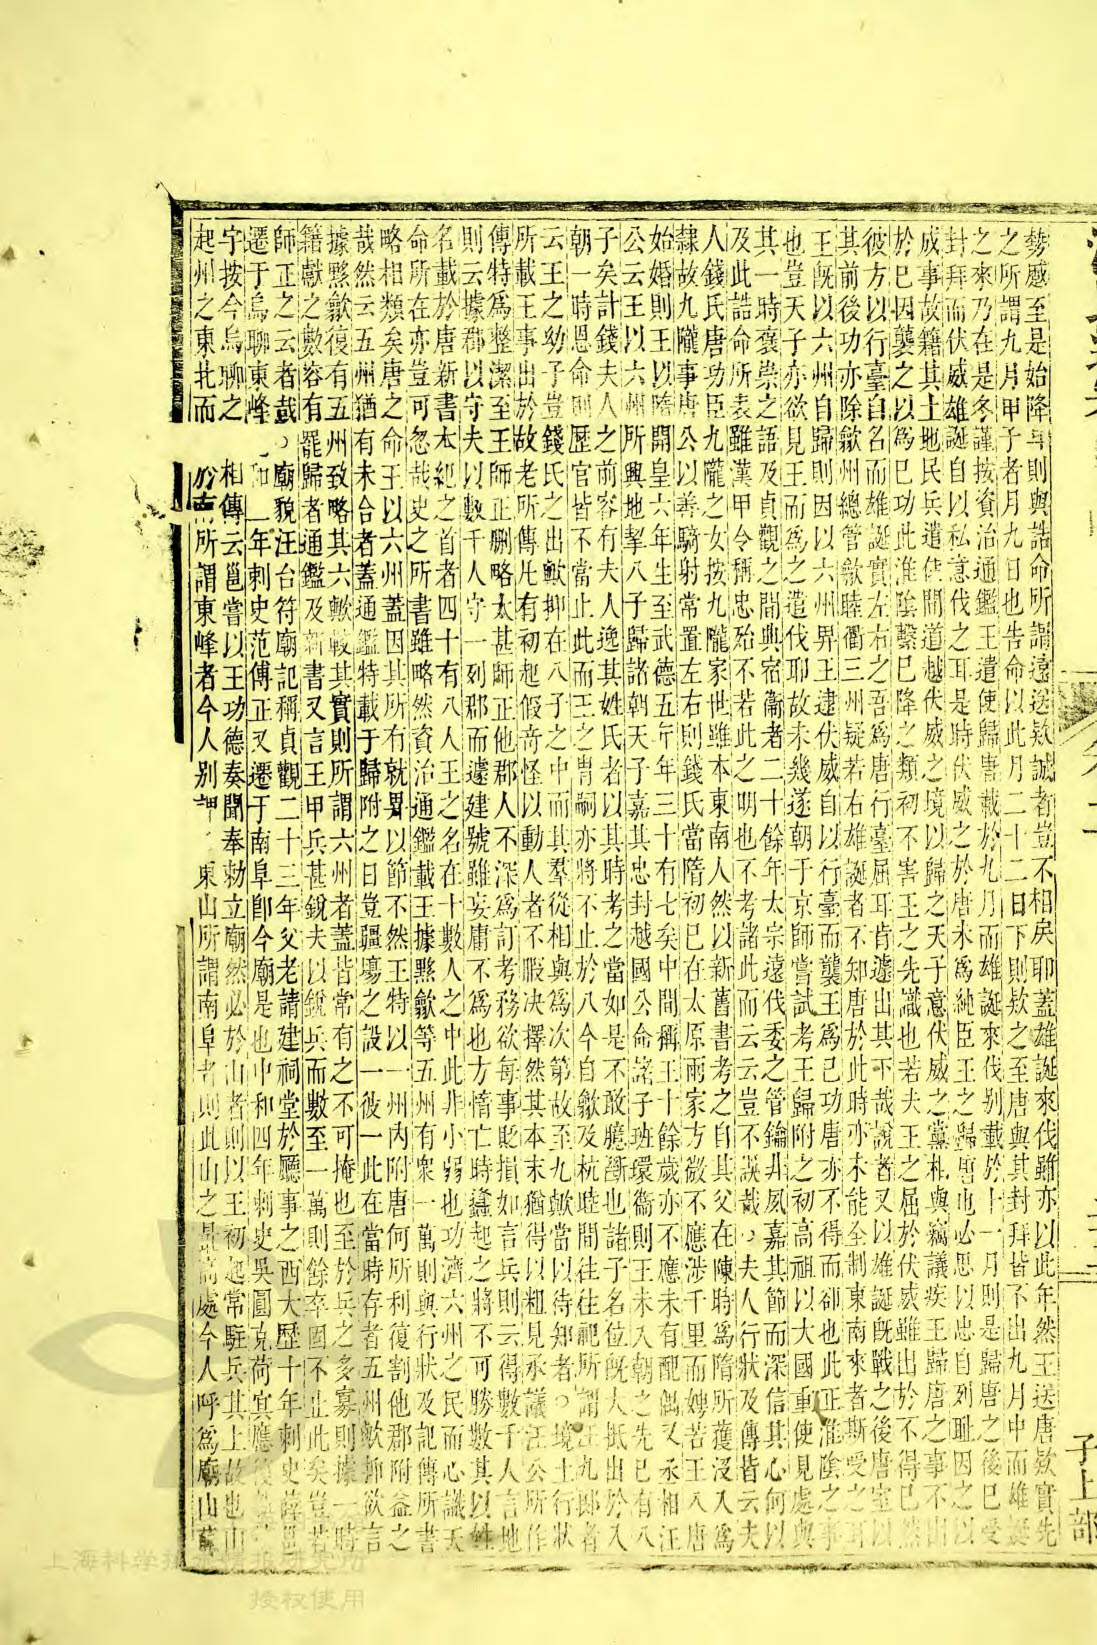 勢蹙至是始降耳則與誥命所謂遠送欵誠者豈不相戾耶蓋雄誕來伐雖亦以此年然王送唐欵實先
之所謂九月甲子者月九日也告命以此月二十二日下則欵之至唐與其封拜皆不出九月中而雄誕
之來乃在是冬謹按資治通鑑王遣使歸唐載於九月而雄誕來伐别載於十一月則是歸唐之後已受
封拜而伏威雄誕自以私意伐之耳是時伏威之於唐未為純臣王之歸唐也必思以忠自列耻因之以
成事故籍其土地民兵遣使間道越伏威之境以歸之天子意伏威之黨相與竊議疾王歸唐之事不出
於已因襲之以為已功此淮陰襲已降之類初不害王之先識也若夫王之屈於伏威雖出於不得已然
彼方以行臺自名而雄誕實左右之吾為唐行臺屈耳肯遽出其下哉說者又以雄誕既戰之後唐室以
其前後功亦除歙州總管歙睦衢三州疑若右雄誕者不知唐於此時亦未能全制東南來者斯受之耳
王既以六州自歸則因以六州界王逮伏威自以行臺而襲王為己功唐亦不得而卻也此正淮陰之事
也豈天子亦欲見王而為之遣伐耶故未幾遂朝于京師嘗試考王歸附之初高祖以大國重使見處與
其一時褒崇之語及貞觀之間典宿衞者二十餘年太宗遠伐委之管鑰井風嘉其節而深信其心何以
及此誥命所表雖漢甲令稱忠殆不若此之明也不考諸此而云云豈不誤哉夫人行狀及傳皆云夫
人錢氏唐功臣九隴之女按九隴家世雖本東南人然以新舊書考之自其父在陳時為隋所獲沒入為
隸故九隴事唐公以善騎射常置左右則錢氏當隋初已在太原兩家方微不應涉千里而娉若王入唐
始婚則王以隋開皇六年生至武德五年年三十有七矣中間稱王十餘歲亦不應未有配偶又丞相汪
公云王以六州所興地挈八子歸諸朝天子嘉其忠封越國公命諸子班環衞則王未入朝之先已有八
子矣計錢夫人之前容有夫人逸其姓氏者以其時考之當如是不敢臆斷也諸子名位既大抵出於入
朝一時恩命則歷官皆不當止此而王之胄嗣亦將不止於八今自歙及杭睦間往往祀所謂汪九郎者
云王之幼子豈錢氏之出歟抑在八子之中而其羣從相與為次第故至九歟當以待知者境土行狀
所載王事出於故老所傳凢有初起假奇怪以動人者不暇決擇然其本末猶得以粗見承議汪公所作
傳特為整潔至王師正刪略太甚師正他郡人不深為訂考務欲每事貶損如言兵則云得數千人言地
則云據郡以守夫以數千人守一列郡而遽建號雖妄庸不為也方惰亡時蠭起之將不可勝數其以姓
名載於唐新書本紀之首者四十有八人王之名在十數人之中此非小弱也功濟六州之民而心識天
命所在亦豈可忽哉史之所書雖略然資治通鑑載王據黟歙等五州有衆一萬則與行狀及記傳所書
略相類矣唐之命王以六州蓋因其所有就畀以節不然王特以一州內附唐何所利復割他郡附益之
哉然云五州猶有未合者蓋通鑑特載于歸附之日豈疆場之設一彼一此在當時存者五州歟抑欲言
據黟歙復有五州致略其六歟較其實則所謂六州者蓋皆常有之不可掩也至於兵之多寡則據一時
籍獻之數容有罷歸者通鑑及新書又言王甲兵甚銳夫以銳兵而數至一萬則餘卒固不止此矣豈若
師正之云者哉廟貌汪台符廟記稱貞觀二十三年父老請建祠堂於廳事之西大歷十年刺史薛邕
遷于烏聊東峰和二年刺史范傳正又遷于南阜卽今廟是也中和四年刺史吳圓克荷㝠應
字按今烏聊之相傳云邕嘗以王功德奏聞奉勅立廟然必於山者則以王初起常駐兵其上故也山
起州之東北而所謂東峰者今人别東山所謂南阜者則此山之最高處今人呼為廟山
子上部
上海科学技术情报研究所
授权使用